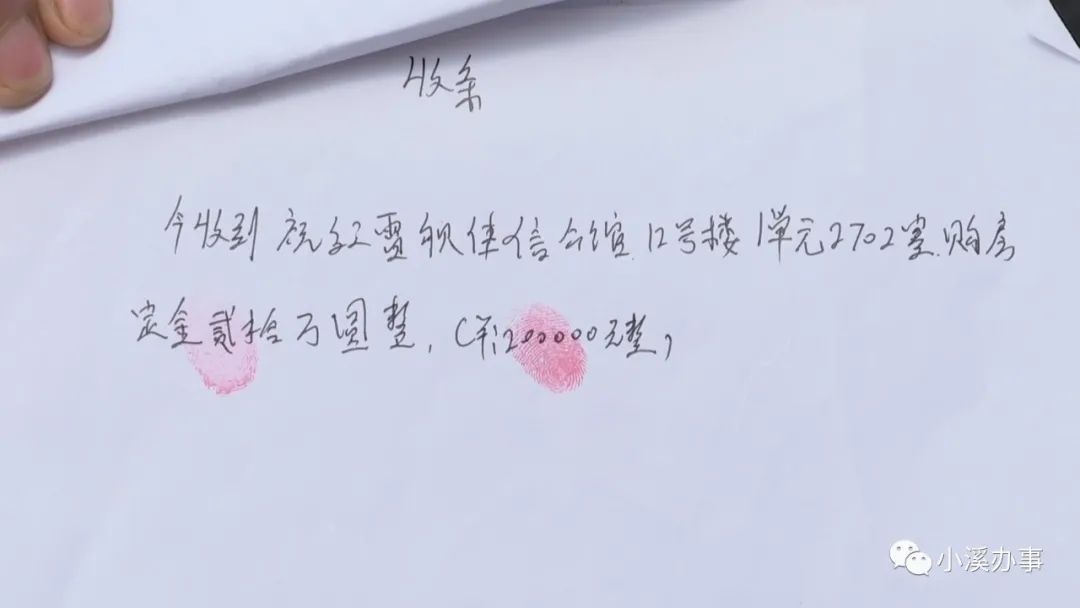 收条
今收到祝红雷 佳信公馆12号楼1单元2702室.购房
定金贰拾万圆整,(¥:200000元整)
小溪办事